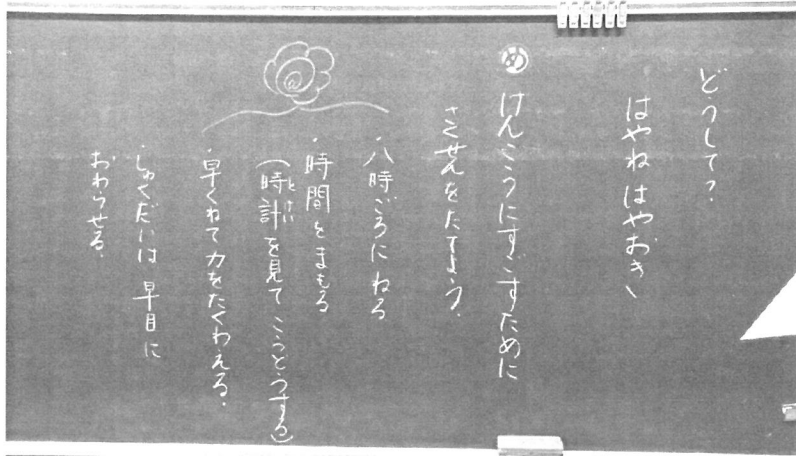 どうして?
はやね はやおき
め けんこうにすごすために
さくせんをたてよう.
・八時ごろに ねる
・時間をまもる
(時計を見て こうどうする)
とけい
・早くねて力をたくわえる.
・しゅくだいは 早目に
おわらせる.